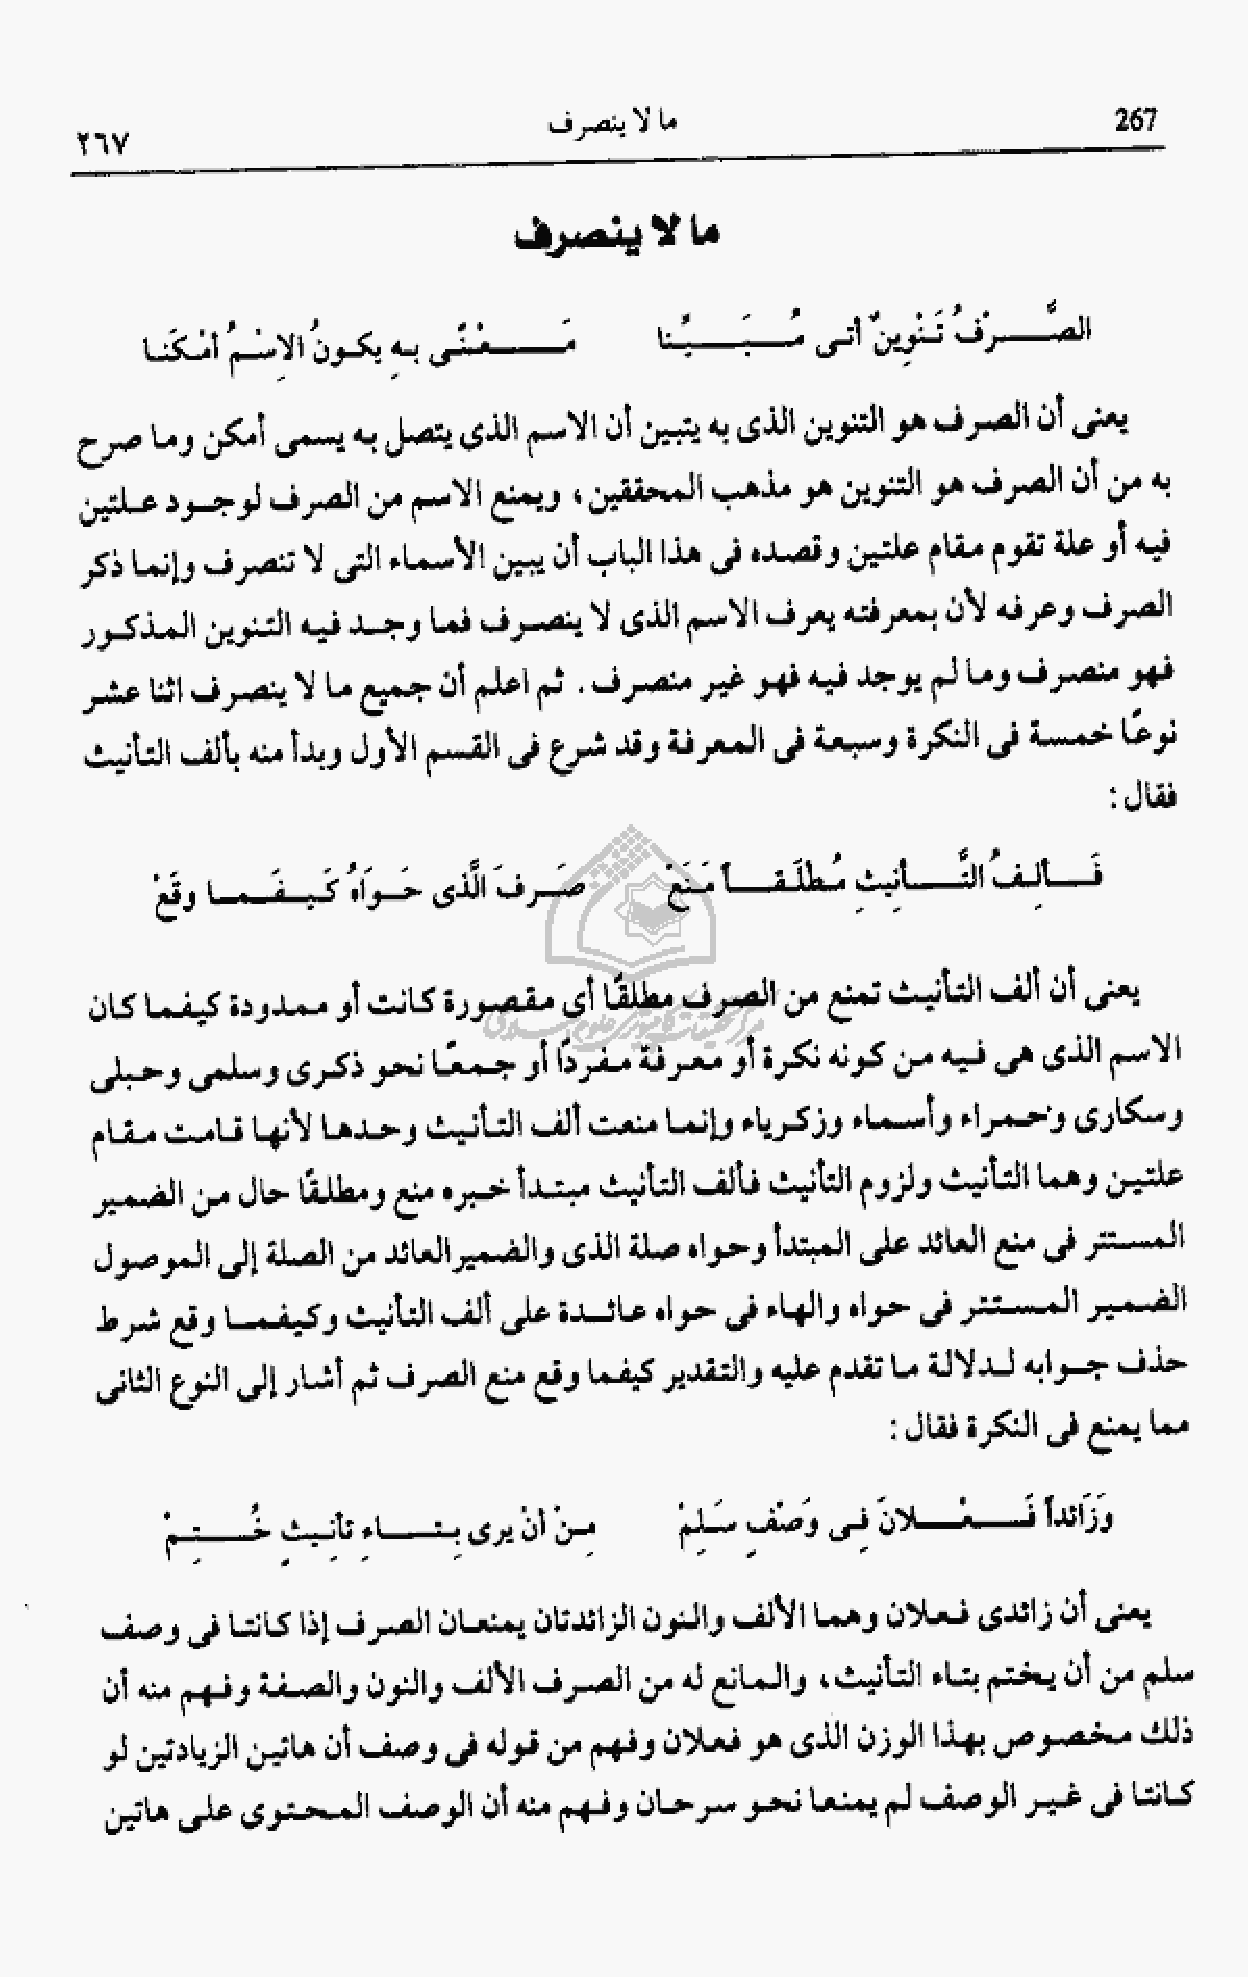 267
ما لا ينصرف
٢٦٧
ما لا ينصرف
الصَّرْفُ تَنْوِينٌ أتى مُبَيِّنا مَعْنًى بِهِ يكونُ الاِسْمُ أمْكَنَا
يعنى أن الصرف هو التنوين الذى به يتبين أن الاسم الذى يتصل به يسمى أمكن وما صرح
به من أن الصرف هو التنوين هو مذهب المحققين ، ويمنع الاسم من الصرف لوجود علتين
فيه أو علة تقوم مقام علتين وقصده فى هذا الباب أن يبين الأسماء التى لا تنصرف وإنما ذكر
الصرف وعرفه لأن بمعرفته يعرف الاسم الذى لا ينصرف فما وجد فيه التنوين المذكور
فهو منصرف وما لم يوجد فيه فهو غير منصرف . ثم اعلم أن جميع ما لا ينصرف اثنا عشر
نوعًا خمسة فى النكرة وسبعة فى المعرفة وقد شرع فى القسم الأول وبدأ منه بألف التأنيث
فقال :
فَألِفُ التَّأنِيثِ مُطلَقاً مَنَعْ صَرفَ الَّذى حَوَاهُ كَيفَما وقَعْ
يعنى أن ألف التأنيث تمنع من الصرف مطلقًا أى مقصورة كانت أو ممدودة كيفما كان
الاسم الذى هى فيه من كونه نكرة أو معرفة مفردًا أو جمعًا نحو ذكرى وسلمى وحبلى
وسكارى وحمراء وأسماء وزكرياء وإنما منعت ألف التأنيث وحدها لأنها قامت مقام
علتين وهما التأنيث ولزوم التأنيث فألف التأنيث مبتدأ خبره منع ومطلقًا حال من الضمير
المستتر فى منع العائد على المبتدأ وحواه صلة الذى والضمير العائد من الصلة إلى الموصول
الضمير المستتر فى حواه والهاء فى حواه عائدة على ألف التأنيث وكيفما وقع شرط
حذف جوابه لدلالة ما تقدم عليه والتقدير كيفما وقع منع الصرف ثم أشار إلى النوع الثانى
مما يمنع فى النكرة فقال :
وَزَائداً فَعْلانَ فِى وَصْفٍ سَلِمْ مِنْ أنْ يرى بِتاءِ تأنِيثٍ خُتِمْ
يعنى أن زائدى فعلان وهما الألف والنون الزائدتان يمنعان الصرف إذا كانتا فى وصف
سلم من أن يختم بتاء التأنيث ، والمانع له من الصرف الألف والنون والصفة وفهم منه أن
ذلك مخصوص بهذا الوزن الذى هو فعلان وفهم من قوله فى وصف أن هاتين الزيادتين لو
كانتا فى غير الوصف لم يمنعا نحو سرحان وفهم منه أن الوصف المحتوى على هاتين